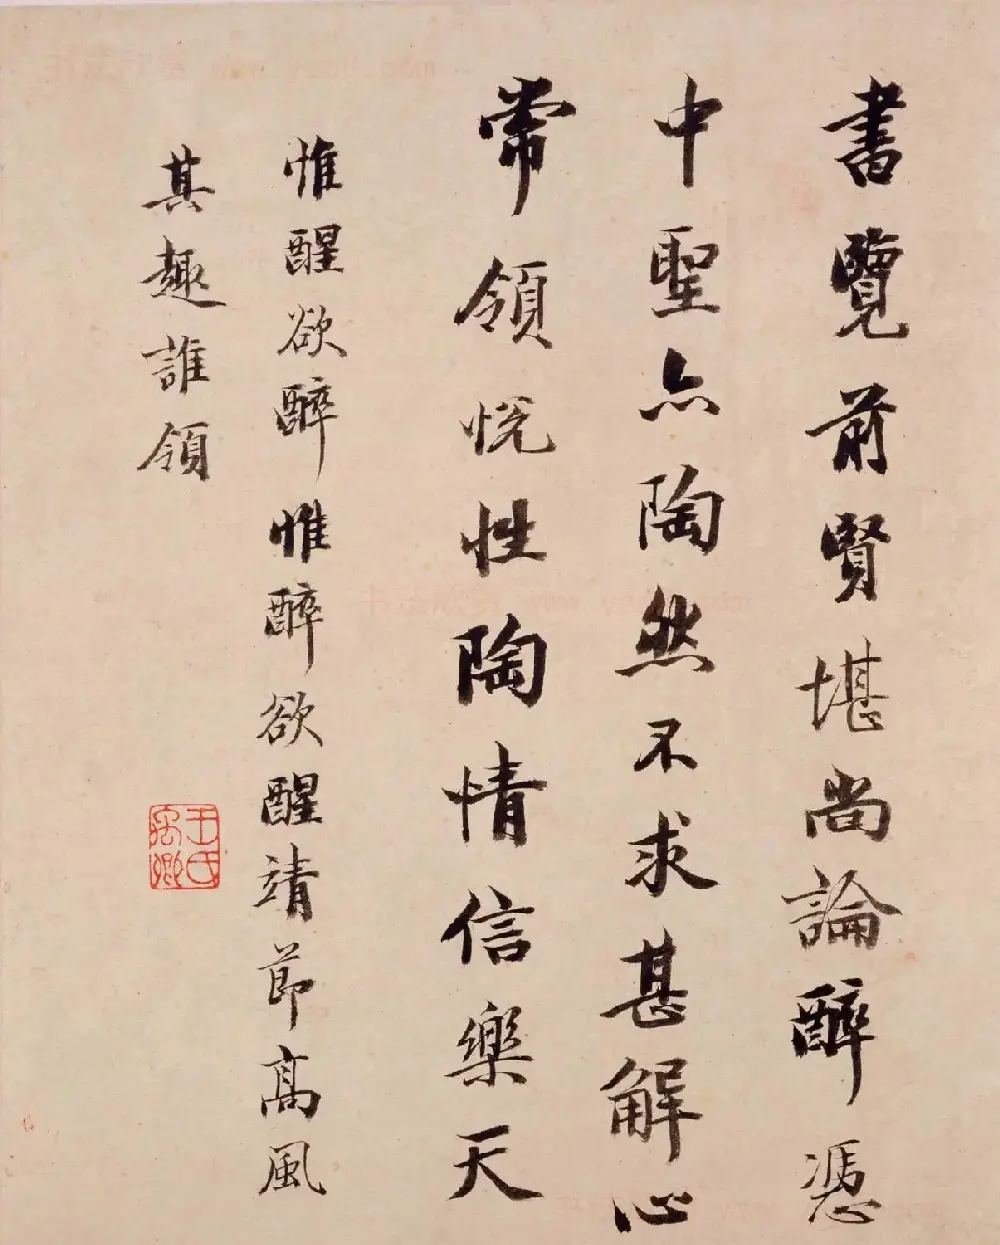 書覽前賢堪尚論醉憑
中聖亦陶然不求甚解心
常領悅性陶情信樂天
惟醒欲醉惟醉欲醒靖節高風
其趣誰領
王氏禹卿